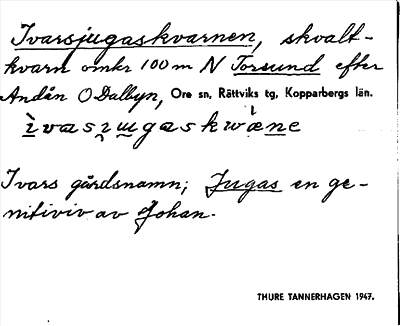 Ivarsjugaskvarnen, skvalt-
kvarn omkr 100 m N Torsund efter
Andån O Dalbyn, Ore sn, Rättviks tg, Kopparbergs län.
Ivars gårdsnamn; Jugas en ge-
nitiviv av Johan.
THURE TANNERHAGEN 1947.